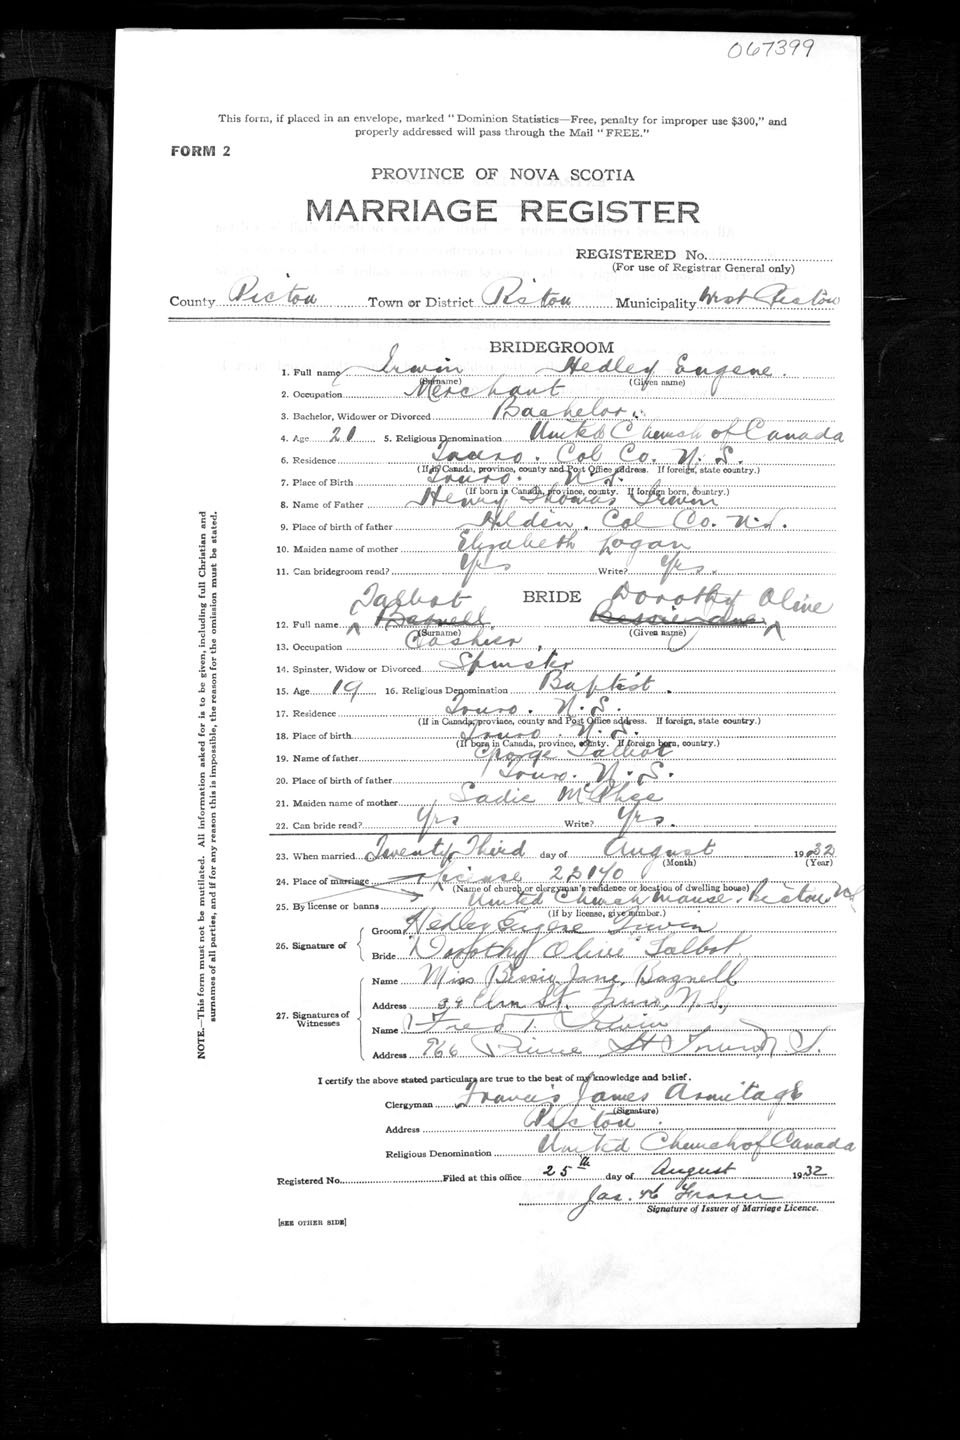 067399
This form, if placed in an envelope, marked "Dominion Statistics—Free, penalty for improper use $300," and
properly addressed will pass through the Mail "FREE."
FORM 2
PROVINCE OF NOVA SCOTIA
MARRIAGE REGISTER
REGISTERED No.
(For use of Registrar General only)
County Pictou Town or District Pictou Municipality West Pictou
BRIDEGROOM
1. Full name Irwin Hedley Eugene
(Surname) (Given name)
2. Occupation Merchant
3. Bachelor, Widower or Divorced Bachelor
4. Age 21 5. Religious Denomination United Church of Canada
6. Residence Truro. Col Co. N. S.
(If in Canada, province, county and Post Office address. If foreign, state country.)
7. Place of Birth Truro. N. S.
(If born in Canada, province, county. If foreign born, country.)
8. Name of Father Henry Thomas Irwin
9. Place of birth of father Hilden, Col Co. N. S.
10. Maiden name of mother Elizabeth Logan
11. Can bridegroom read? Yes Write? Yes.
BRIDE
Talbot Dorothy Olive
12. Full name Bagnell Bessie Jane
(Surname) (Given name)
13. Occupation Cashier
14. Spinster, Widow or Divorced Spinster
15. Age 19 16. Religious Denomination Baptist.
17. Residence Truro. N. S.
(If in Canada, province, county and Post Office address. If foreign, state country.)
18. Place of birth Truro. N. S.
(If born in Canada, province, county. If foreign born, country.)
19. Name of father George Talbot
20. Place of birth of father Truro. N. S.
21. Maiden name of mother Sadie McPhee
22. Can bride read? Yrs Write? Yrs.
23. When married Twenty Third day of August 1932
(Month) (Year)
24. Place of marriage License 22140
(Name of church or clergyman's residence or location of dwelling house)
25. By license or banns United Church Manse, Pictou N S
(If by license, give number.)
26. Signature of
Groom Hedley Eugene Irwin
Bride Dorothy Olive Talbot
27. Signatures of Witnesses
Name Miss Bessie Jane Bagnell
Address 34 Elm St. Truro, N. S.,
Name Fred T. Irwin
Address 966 Prince St Truro, N. S.
I certify the above stated particulars are true to the best of my knowledge and belief.
Clergyman Francis James Armitage
(Signature)
Address Pictou.
Religious Denomination United Church of Canada
Registered No. Filed at this office 25th day of August 1932
Jas. H Fraser
Signature of Issuer of Marriage Licence.
[SEE OTHER SIDE]
NOTE.—This form must not be mutilated. All information asked for is to be given, including full Christian and
surnames of all parties, and if for any reason this is impossible, the reason for the omission must be stated.